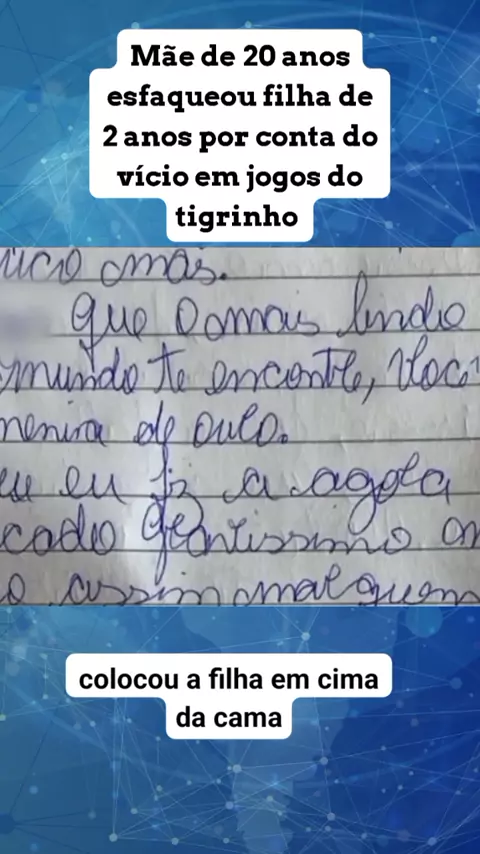 Mãe de 20 anos
esfaqueou filha de
2 anos por conta do
vício em jogos do
tigrinho
mas.
que o mais lindo
mundo te encontle, Você
menina de oulo.
eu eu fiz a agola
cado glantissimo
o assim mal quem
colocou a filha em cima
da cama